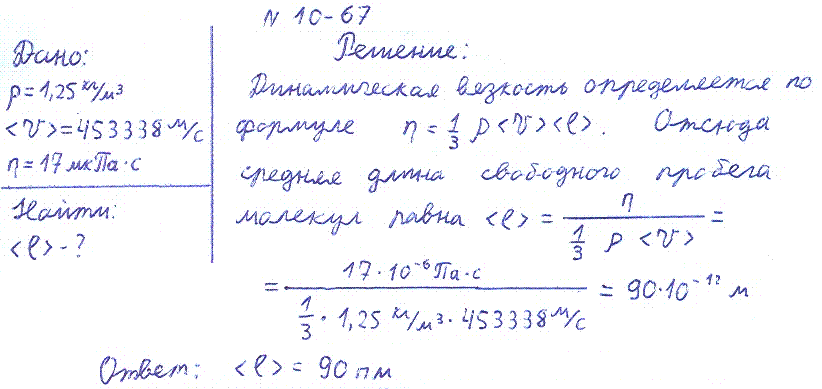 N 10-67
Дано:
ρ = 1,25 кг/м³
<v> = 453338 м/с
η = 17 мкПа·с
Найти:
<l> - ?
Решение:
Динамическая вязкость определяется по
формуле η = 1/3 ρ <v> <l>. Отсюда
средняя длина свободного пробега
молекул равна <l> = η / (1/3 ρ <v>) =
= 17·10⁻⁶ Па·с / (1/3 · 1,25 кг/м³ · 453338 м/с) = 90·10⁻¹² м
Ответ: <l> = 90 пм